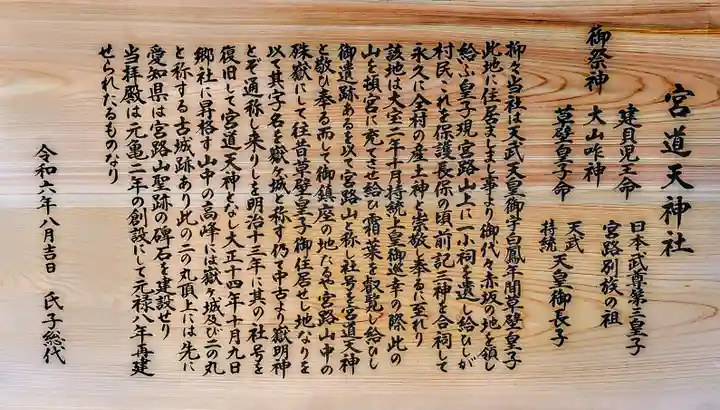 宮道天神社
御祭神
建貝児王命 日本武尊第三皇子 宮路別族の祖
大山咋神
草壁皇子命 天武 持統 天皇御長子
抑々当社は天武天皇御宇白鳳年間草壁皇子
此地に住居ましまし事より御代々赤坂の地を領し
給ふ皇子現宮路山上に一小祠を遺し給ひしが
村民これを保護長保の頃前記三神を合祠して
永久に全村の産土神と崇敬し奉るに至れり
該地は大宝二年十月持統上皇御巡幸の際此の
山を頓宮に充てさせ給ひ霜葉を叡覧し給ひし
御遺跡あるを以て宮路山と称し社号を宮道天神
と敬ひ奉る而して御鎮座の地たるや宮路山中の
殊嶽にして往昔草壁皇子御住居せし地なりを
以て其子名を嶽ヶ城と称す仍て中古より嶽明神
とぞ通称し来りしを明治十二年に其の社号を
復旧して宮道天神となし大正十四年十月九日
郷社に昇格す山中の高峰には嶽ヶ城及び二の丸
と称する古城跡あり此の二の丸頂上には先に
愛知県は宮路山聖跡の碑石を建設せり
当拝殿は元亀二年の創設にして元禄八年再建
せられたるものなり
令和六年八月吉日 氏子総代